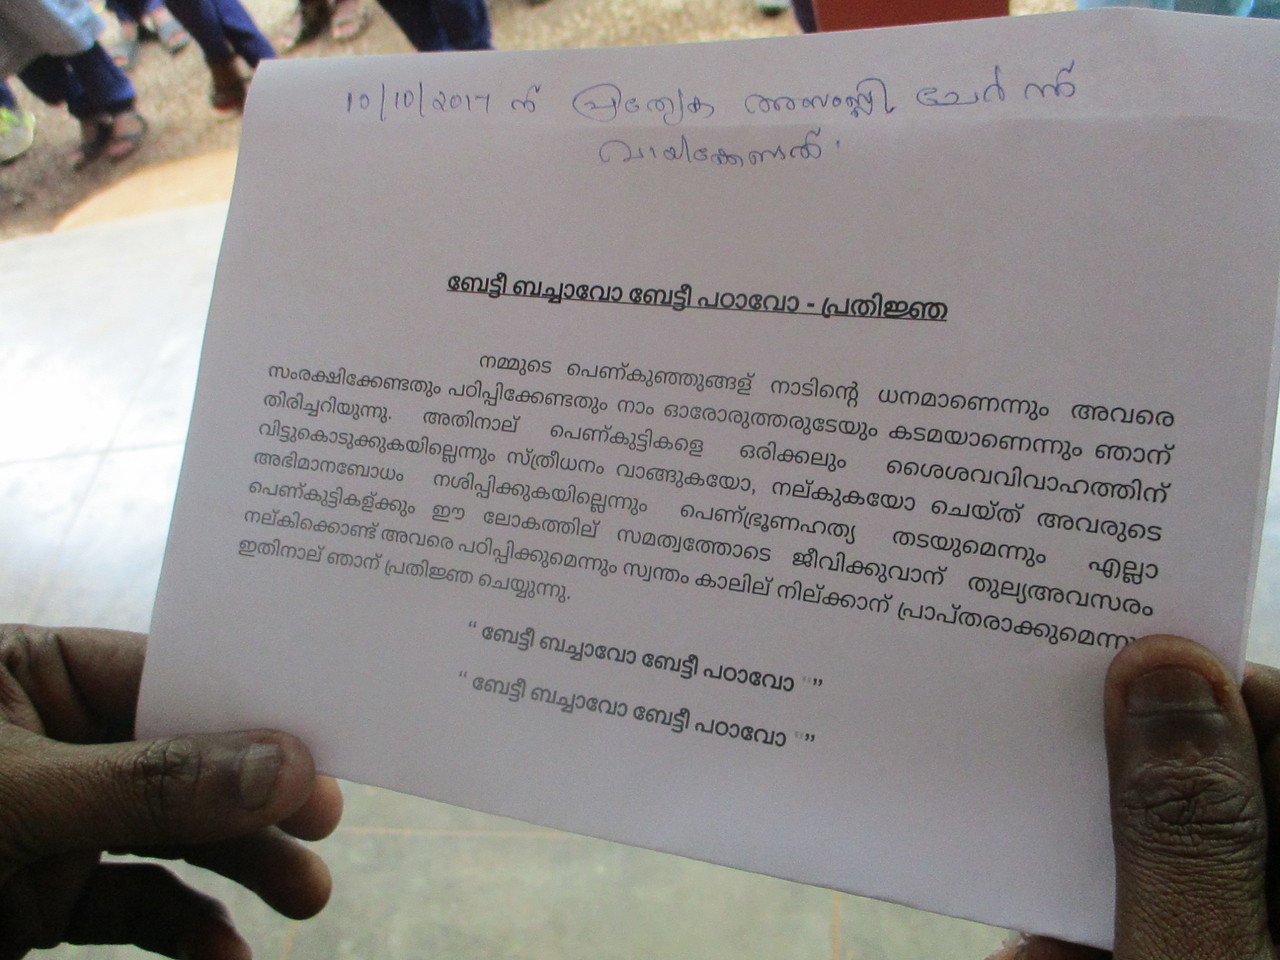 10/10/2017 ന് പ്രത്യേക അസംബ്ലി ചേർന്ന്
വായിക്കേണ്ടത്
ബേട്ടീ ബച്ചാവോ ബേട്ടീ പഠാവോ - പ്രതിജ്ഞ
നമ്മുടെ പെണ്കുഞ്ഞുങ്ങള് നാടിന്റെ ധനമാണെന്നും അവരെ
സംരക്ഷിക്കേണ്ടതും പഠിപ്പിക്കേണ്ടതും നാം ഓരോരുത്തരുടേയും കടമയാണെന്നും ഞാന്
തിരിച്ചറിയുന്നു. അതിനാല് പെണ്കുട്ടികളെ ഒരിക്കലും ശൈശവവിവാഹത്തിന്
വിട്ടുകൊടുക്കുകയില്ലെന്നും സ്ത്രീധനം വാങ്ങുകയോ, നല്കുകയോ ചെയ്ത് അവരുടെ
അഭിമാനബോധം നശിപ്പിക്കുകയില്ലെന്നും പെണ്ഭ്രൂണഹത്യ തടയുമെന്നും എല്ലാ
പെണ്കുട്ടികള്ക്കും ഈ ലോകത്തില് സമത്വത്തോടെ ജീവിക്കുവാന് തുല്യഅവസരം
നല്കിക്കൊണ്ട് അവരെ പഠിപ്പിക്കുമെന്നും സ്വന്തം കാലില് നില്ക്കാന് പ്രാപ്തരാക്കുമെന്നും
ഇതിനാല് ഞാന് പ്രതിജ്ഞ ചെയ്യുന്നു.
“ ബേട്ടീ ബച്ചാവോ ബേട്ടീ പഠാവോ “”
“ ബേട്ടീ ബച്ചാവോ ബേട്ടീ പഠാവോ “”